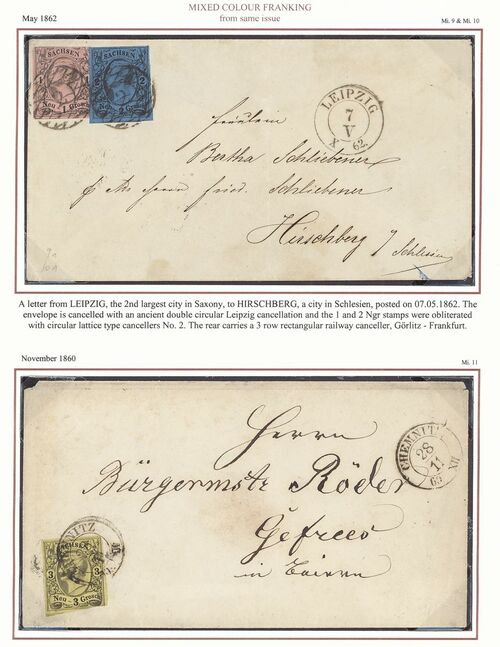 MIXED COLOUR FRANKING
from same issue
May 1862
Mi. 9 & Mi. 10
SACHSEN
Neu - 1 Grosch
SACHSEN
LEIPZIG
7
V
X 62
Fräulein
Bertha Schliebener
Schliebener
Hirschberg
Schlesien
A letter from LEIPZIG, the 2nd largest city in Saxony, to HIRSCHBERG, a city in Schlesien, posted on 07.05.1862. The
envelope is cancelled with an ancient double circular Leipzig cancellation and the 1 and 2 Ngr stamps were obliterated
with circular lattice type cancellers No. 2. The rear carries a 3 row rectangular railway canceller, Görlitz - Frankfurt.
November 1860
Mi. 11
Herrn
CHEMNITZ
28
11
XII
Bürgermstr Röder
Gefrees
in Baiern
SACHSEN
3 3
Neu - 3 Grosch